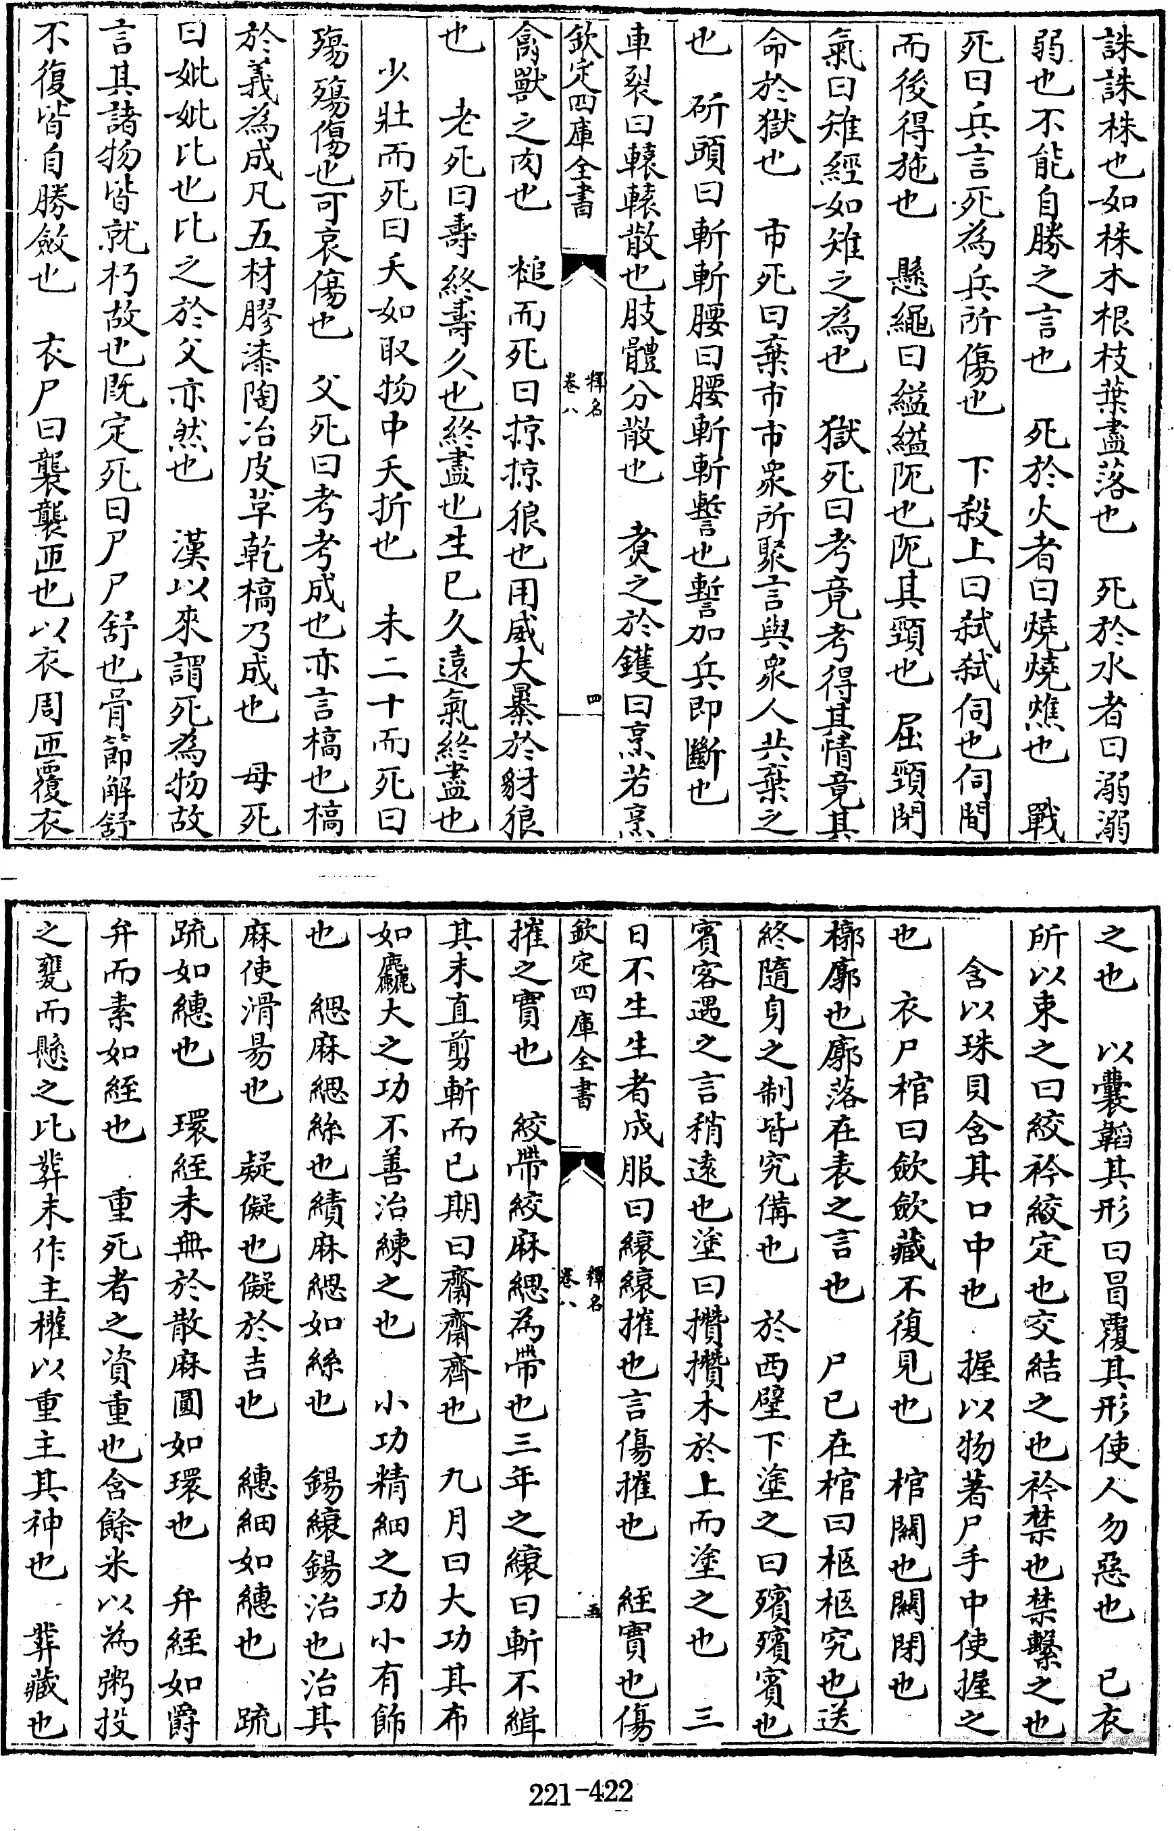 誅誅株也如株木根枝葉盡落也　死於水者曰溺溺
弱也不能自勝之言也　死於火者曰燒燒燋也　戰
死曰兵言死為兵所傷也　下殺上曰弒弒伺也伺間
而後得施也　懸繩曰縊縊阨也阨其頸也　屈頸閉
氣曰雉經如雉之為也　獄死曰考竟考得其情竟其
命於獄也　市死曰棄市市衆所聚言與衆人共棄之
也　斫頭曰斬斬腰曰腰斬斬暫也暫加兵即斷也
車裂曰轘轘散也肢體分散也　煑之於鑊曰烹若烹
欽定四庫全書
釋名
卷八
四
禽獸之肉也　槌而死曰掠掠狼也用威大暴於豺狼
也　老死曰壽終壽久也終盡也生已久遠氣終盡也
少壯而死曰夭如取物中夭折也　未二十而死曰
殤殤傷也可哀傷也　父死曰考考成也亦言槁也槁
於義為成凡五材膠漆陶冶皮革乾槁乃成也　母死
曰妣妣比也比之於父亦然也　漢以來謂死為物故
言其諸物皆就朽故也既定死曰尸尸舒也骨節解舒
不復皆自勝斂也　衣尸曰襲襲匝也以衣周匝覆衣
之也　以囊韜其形曰冒覆其形使人勿惡也　已衣
所以束之曰絞衿絞定也交結之也衿禁也禁繫之也
含以珠貝含其口中也　握以物著尸手中使握之
也　衣尸棺曰斂斂藏不復見也　棺關也關閉也
槨廓也廓落在表之言也　尸已在棺曰柩柩究也送
終隨身之制皆究備也　於西壁下塗之曰殯殯賓也
賓客遇之言稍遠也塗曰攢攢木於上而塗之也　三
日不生生者成服曰縗縗摧也言傷摧也　絰實也傷
欽定四庫全書
釋名
卷八
五
摧之實也　絞帶絞麻緦為帶也三年之縗曰斬不緝
其末直剪斬而已期曰齋齋齊也　九月曰大功其布
如麤大之功不善治練之也　小功精細之功小有飾
也　緦麻緦絲也績麻緦如絲也　錫縗錫治也治其
麻使滑易也　疑儗也儗於吉也　繐細如繐也　疏
疏如繐也　環絰末無於散麻圓如環也　弁絰如爵
弁而素如絰也　重死者之資重也含餘米以為粥投
之甕而懸之比葬未作主權以重主其神也　葬藏也
221-422